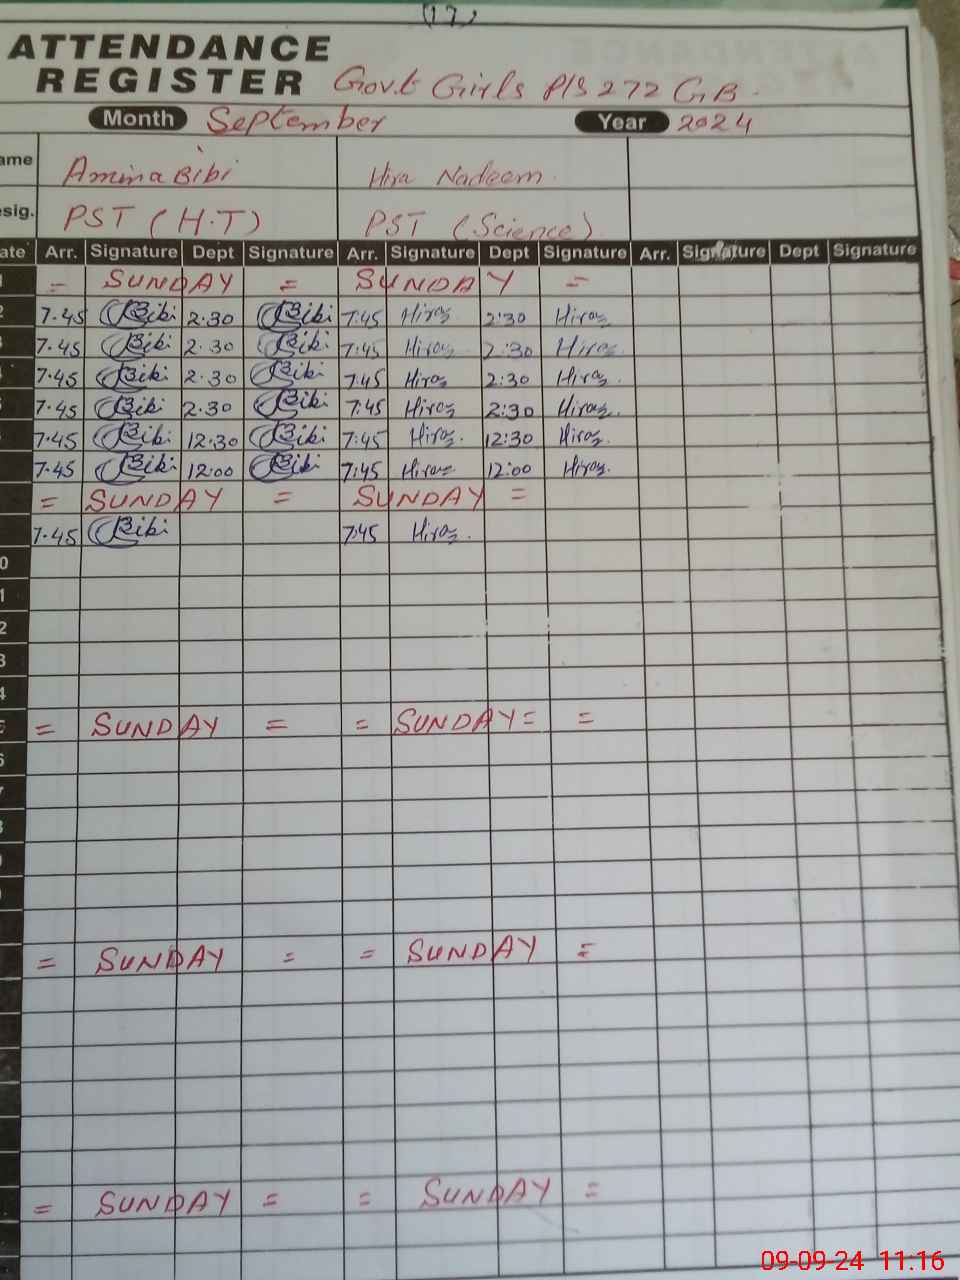 (17)
ATTENDANCE
REGISTER Govt Girls P/S 272 GB.
Month September Year 2024
ame Amina Bibi Hira Nadeem.
sig. PST (H.T) PST (Science)
ate Arr. Signature Dept Signature Arr. Signature Dept Signature Arr. Signature Dept Signature
1 = SUNDAY = SUNDAY =
2 7.45 Bibi 2.30 Bibi 7:45 Hira 2:30 Hira
3 7.45 Bibi 2.30 Bibi 7:45 Hira 2:30 Hira
4 7.45 Bibi 2.30 Bibi 7:45 Hira 2:30 Hira
5 7.45 Bibi 2.30 Bibi 7:45 Hira 2:30 Hira
7.45 Bibi 12.30 Bibi 7:45 Hira 12:30 Hira
7.45 Bibi 12:00 Bibi 7:45 Hira 12:00 Hira
= SUNDAY = SUNDAY =
7.45 Bibi 7:45 Hira
0
1
2
3
4
5 = SUNDAY = = SUNDAY = =
6
7
8
9
= SUNDAY = = SUNDAY =
= SUNDAY = = SUNDAY =
09-09-24 11:16